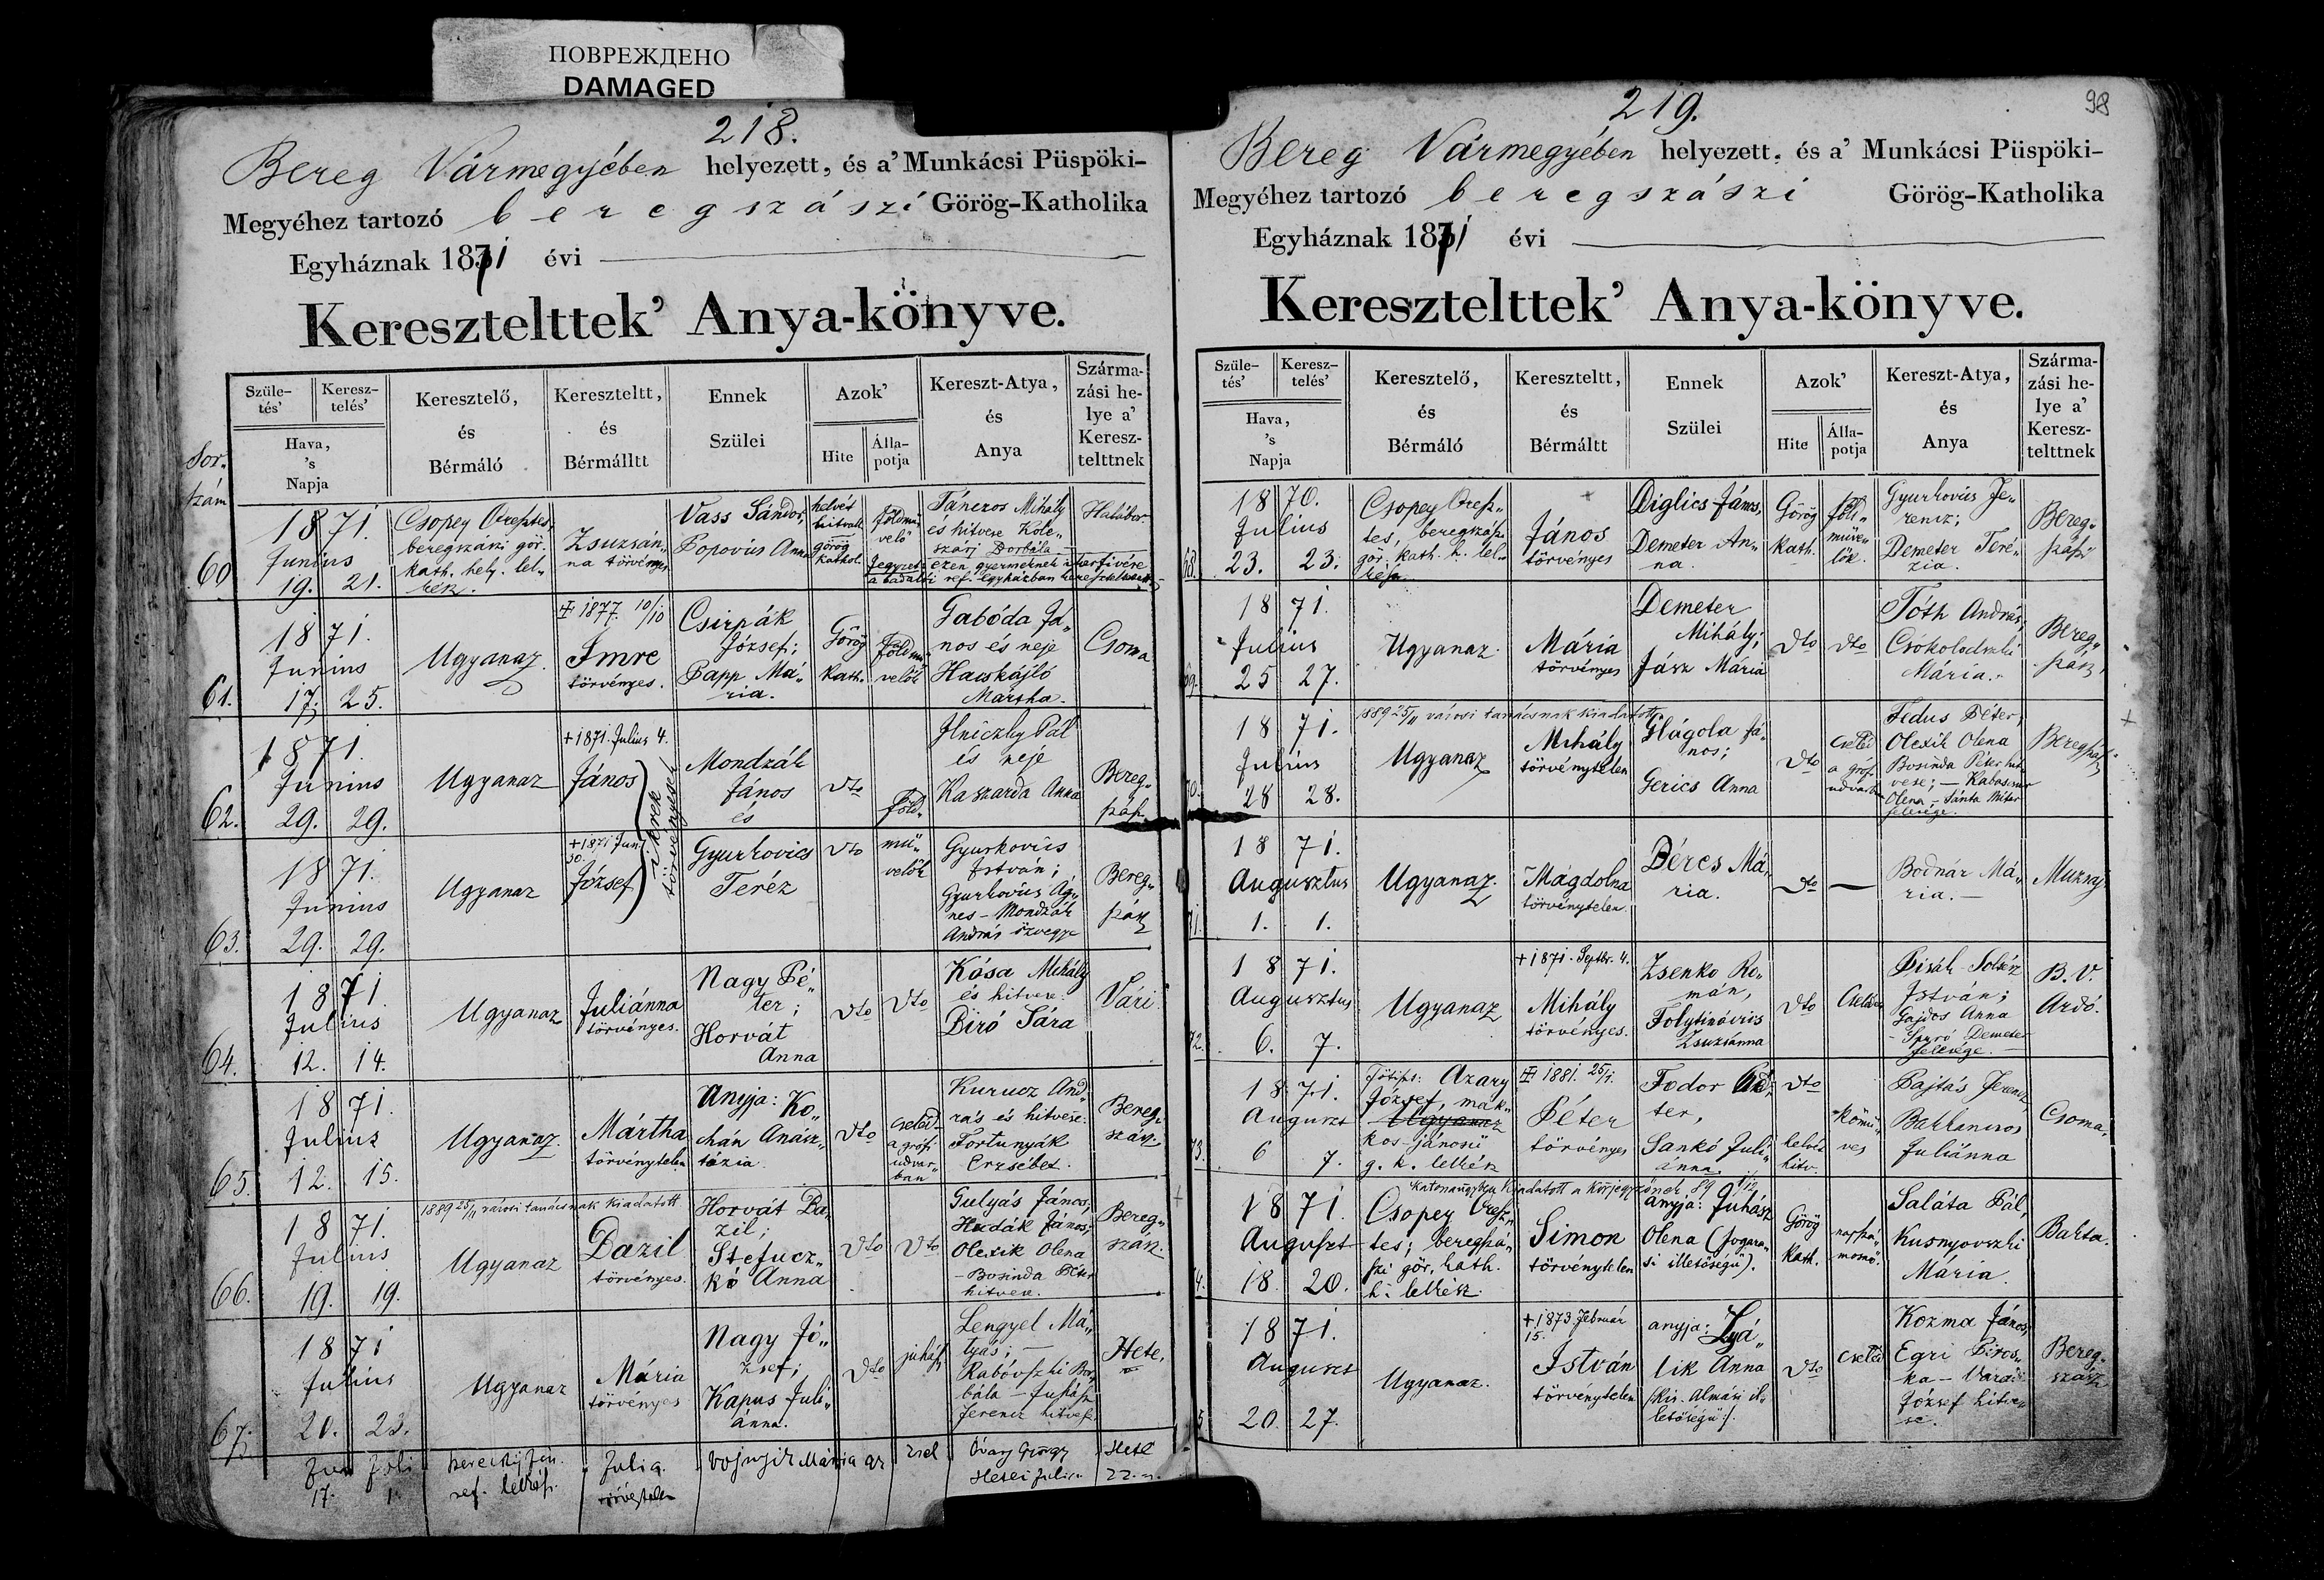 ПОВРЕЖДЕНО
DAMAGED
218.
Bereg Vármegyében helyezett, és a' Munkácsi Püspöki-
Megyéhez tartozó beregszászi Görög-Katholika
Egyháznak 1871 évi
Keresztelttek' Anya-könyve.
Sor szám
Szüle-tés' Keresz-telés' Hava, 's Napja
Keresztelő, és Bérmáló
Kereszteltt, és Bérmálltt
Ennek Szülei
Azok' Hite Álla-potja
Kereszt-Atya, és Anya
Szárma-zási he-lye a' Keresz-telttnek
60
1871.
Junius
19. 21.
Csopey
beregszászi gör.
kath. hely. lel„
kész.
Zsuzsán„
na törvényes
Vass Sándor,
Popovics Anna
helvét
hitvall.
görög
kathol.
földmü„
velö
Tánczos Mihály
és hitvese
Borbála
61.
1871.
Junius
17. 25.
Ugyanaz.
1877. 10/10
Imre
törvényes.
Csirpák
József;
Papp Má„
ria.
Görög
kath.
Földmü„
velök
Gabóda Já„
nos és neje
Hacskájló
Mártha.
Csoma
62.
1871.
Junius
29. 29.
Ugyanaz
+1871. Julius 4.
János
ikrek
törvényesek
Mondzák
János
és
dto
Föld„
Ilniczky Pál
és neje
Kaszarda Anna
Bereg„
szász
63.
1871.
Junius
29. 29.
Ugyanaz
+1871 Jun.
30.
József
Gyurkovics
Teréz
dto
mü„
velök
Gyurkovics
István;
Gyurkovics Ág„
nes – Mondzák
András özvegye
Bereg„
szász
64.
1871
Julius
12. 14.
Ugyanaz
Juliánna
törvényes.
Nagy Pé„
ter;
Horvát
Anna
dto
dto
Kósa Mihály
és hitvese:
Biró Sára
Vári
65.
1871.
Julius
12. 15.
Ugyanaz.
Mártha
törvénytelen
Anyja: Ko„
chán Anász„
tázia.
dto
cseléd
a grófi
udvar„
ban
Kurucz And„
rás és hitvese:
Fortunyák
Erzsébet.
Bereg„
szász
66.
1871
Julius
19. 19.
1889 25/11 városi tanácsnak kiadatott
Ugyanaz
Bazil
törvényes.
Horvát Ba„
zil;
Stefucz„
kó Anna
dto
dto
Gulyás János,
Hudák János;
Olexik Olena
– Bosinda Péter
hitvese.
Bereg„
szász.
67.
1871
Julius
20. 23.
Ugyanaz
Mária
törvényes
Nagy Jó„
zsef;
Kapus Juli„
ánna.
dto
juhász
Lengyel Má„
tyás; –
Juhász
Ferencz hitvese.
Hete.
17. 1.
ref. lelkész.
Julia.
törvénytelen
Mária
Óvary György
Hetei Julia
Hete
219.
98
Bereg Vármegyében helyezett, és a' Munkácsi Püspöki-
Megyéhez tartozó beregszászi Görög-Katholika
Egyháznak 1871 évi
Keresztelttek' Anya-könyve.
Szüle-tés' Keresz-telés' Hava, 's Napja
Keresztelő, és Bérmáló
Kereszteltt, és Bérmáltt
Ennek Szülei
Azok' Hite Álla-potja
Kereszt-Atya, és Anya
Szárma-zási he-lye a' Keresz-telttnek
68.
1870.
Julius
23. 23.
Csopey Oresz„
tés, beregszászi
gör. kath. h. lel„
késze
János
törvényes
Diglics János,
Demeter An„
na.
Görög
kath.
föld„
müve„
lök.
Gyurkovics Fe„
rencz;
Demeter Teré„
zia.
Bereg„
szász
69.
1871.
Julius
25 27.
Ugyanaz.
Mária
törvényes
Demeter
Mihály;
Jász Mária
dto
dto
Tóth András,
Mária.
Bereg„
szász,
70.
1871.
Julius
28 28.
1889 25/11 városi tanácsnak kiadatott
Ugyanaz
Mihály
törvénytelen
Glágola Já„
nos;
Gerics Anna
dto
cseléd
a grófi
udvarban
Fedus Péter;
Olexik Olena
Bosinda Péter hit„
vese; –
Olena –
felesége.
Beregszász
71.
1871.
Augusztus
1. 1.
Ugyanaz.
Magdolna
törvénytelen.
Béres Má„
ria.
dto
—
Bodnár Má„
ria. –
Muzsaj
72.
1871.
Augusztus
6. 7.
Ugyanaz
+1871. Septbr. 4.
Mihály
törvényes.
Zsenko Ro„
mán,
Folytinóvics
Zsuzsánna
dto
Cseléd
István;
Gajdos Anna
Demeter
felesége. –
B. V.
Ardó.
73.
1871.
Auguszt
6 7.
Azary
József, mak„
Ugyanaz
kos-jánosii
g. k. lelkész
1881. 25/1.
Péter
törvényes
Fodor
ter,
Sankó Juli„
ánna.
dto
helvét
hitv.
kömü„
ves
Pajtás Ferencz
Juliánna
Csoma,
4.
1871.
Auguszt
18. 20.
Csopey Oresz„
tes; beregszá„
szi gör. kath.
h. lelkész.
kiadatott a Körjegyzönek 89
Simon
törvénytelen
anyja: Juhász
Olena (fogara„
si illetöségü).
Görög
kath.
napszá„
mosnö.
Saláta Pál,
Kusnyovszki
Mária.
Bakta.
5.
1871.
Auguszt
20. 27.
Ugyanaz.
+1873 Februar
15.
István
törvénytelen
anyja: Lyá„
lik Anna
(Kis-Almási il„
letöségü).
dto
cseléd
Kozma János,
Egri Piros„
ka – Váradi
József hitve„
se.
Bereg„
szász